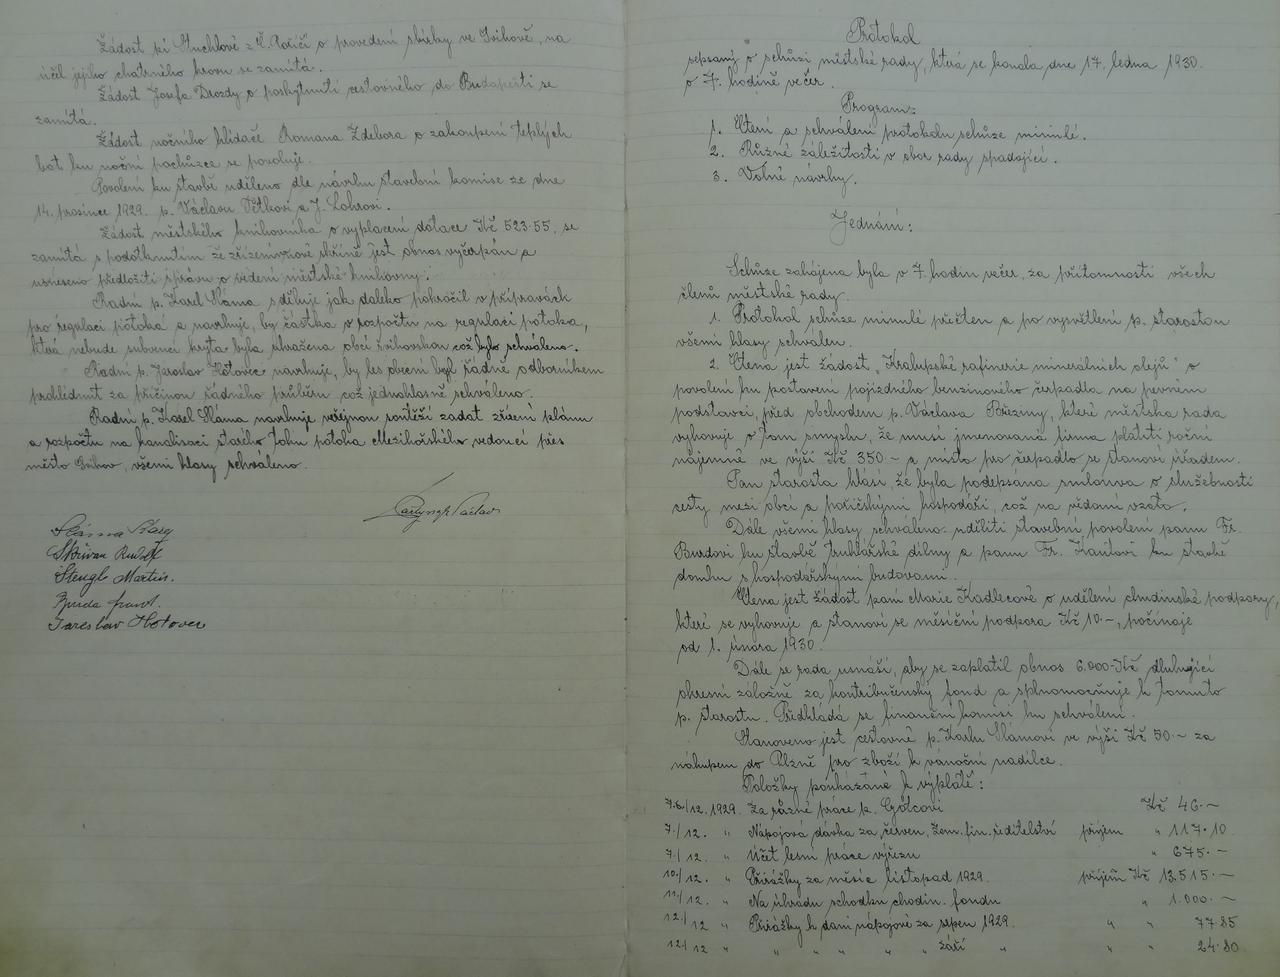 Žádost pí Stuchlové z Č. Poříčí o provedení sbírky ve Švihově, na
účel jejího chatrného krovu se zamítá.
Žádost Josefa Drozdy o poskytnutí cestovného do Budapešti se
zamítá.
Žádost nočního hlídače Romana Zdebora o zakoupení teplých
bot ku noční pochůzce se povoluje.
Povolení ku stavbě uděleno dle návrhu stavební komise ze dne
14. prosince 1929. p. Václavu Větkovi a J. Lohrovi.
Žádost městského knihovníka o vyplacení dotace Kč 523·55, se
zamítá s podotknutím že zřízením nové skříně jest obnos vyčerpán a
usneseno předložiti správu o vedení městské knihovny.
Radní p. Karel Sláma sděluje jak daleko pokročil v přípravách
pro regulaci potoka a navrhuje, by částka v rozpočtu na regulaci potoka,
která nebude subvencí kryta byla uhražena obcí švihovskou což bylo schváleno.
Radní p. Jaroslav Hotovec navrhuje, by les obecní byl řádně odborníkem
prohlédnut za příčinou řádného průběru což jednohlasně schváleno.
Radní p. Karel Sláma navrhuje veřejnou soutěží zadat zřízení plánu
a rozpočtu na kanalisaci starého toku potoka Mezihořského vedoucí přes
město Švihov, všemi hlasy schváleno.
Václav
Sláma Karel
Skřivan Rudolf
Stengl Martin.
Burda Frant.
Jaroslav Hotovec
Protokol
sepsaný o schůzi městské rady, která se konala dne 17. ledna 1930.
o 7. hodině večer.
Program:
1. Čtení a schválení protokolu schůze minulé.
2. Různé záležitosti v obor rady spadající.
3. Volné návrhy.
Jednání:
Schůze zahájena byla v 7. hodin večer, za přítomnosti všech
členů městské rady.
1. Protokol schůze minulé přečten a po vysvětlení p. starostou
všemi hlasy schválen.
2. Čtena jest žádost „Kralupské rafinerie minerálních olejů" o
povolení ku postavení pojízdného benzinového čerpadla na pevném
podstavci, před obchodem p. Václava Březiny, které městská rada
vyhovuje v tom smyslu, že musí jmenovaná firma platiti roční
nájemné ve výši Kč 350·– a místo pro čerpadlo se stanoví úřadem.
Pan starosta hlásí, že byla podepsána smlouva o služebnosti
cesty mezi obcí a poříčskými hospodáři, což na vědomí vzato.
Dále všemi hlasy schváleno uděliti stavební povolení panu Fr.
Burdovi ku stavbě truhlářské dílny a panu Fr. Kautovi ku stavbě
domku s hospodářskými budovami.
Čtena jest žádost paní Marie Kadlecové o udělení chudinské podpory,
které se vyhovuje a stanoví se měsíční podpora Kč 10·–, počínaje
od 1. února 1930.
Dále se rada usnáší, aby se zaplatil obnos 6.000·Kč dlužnící
okresní záložně za kontribučenský fond a splnomocňuje k tomuto
p. starostu. Předkládá se finanční komisi ku schválení.
Stanoveno jest cestovné p. Karlu Slámovi ve výši Kč 50·– za
nákupem do Plzně pro zboží k vánoční nadílce.
Položky poukázané k výplatě:
7.6./12. 1929. Za různé práce p. Gölcovi Kč 46·–
7./12. „ Nápojová dávka za červen, Zem. fin. ředitelství příjem „ 117·10
7./12. „ Účet lesní práce výřezu „ 675·–
10./12. „ Přirážky za měsíc listopad 1929. příjem Kč 13.515·–
11./12. „ Na úhradu schodku chudin. fondu „ 1.000·–
12./12 „ Přirážky k dani nápojové za srpen 1929. „ „ 77·85
12./12 „ „ „ „ „ „ září „ „ „ 24·80